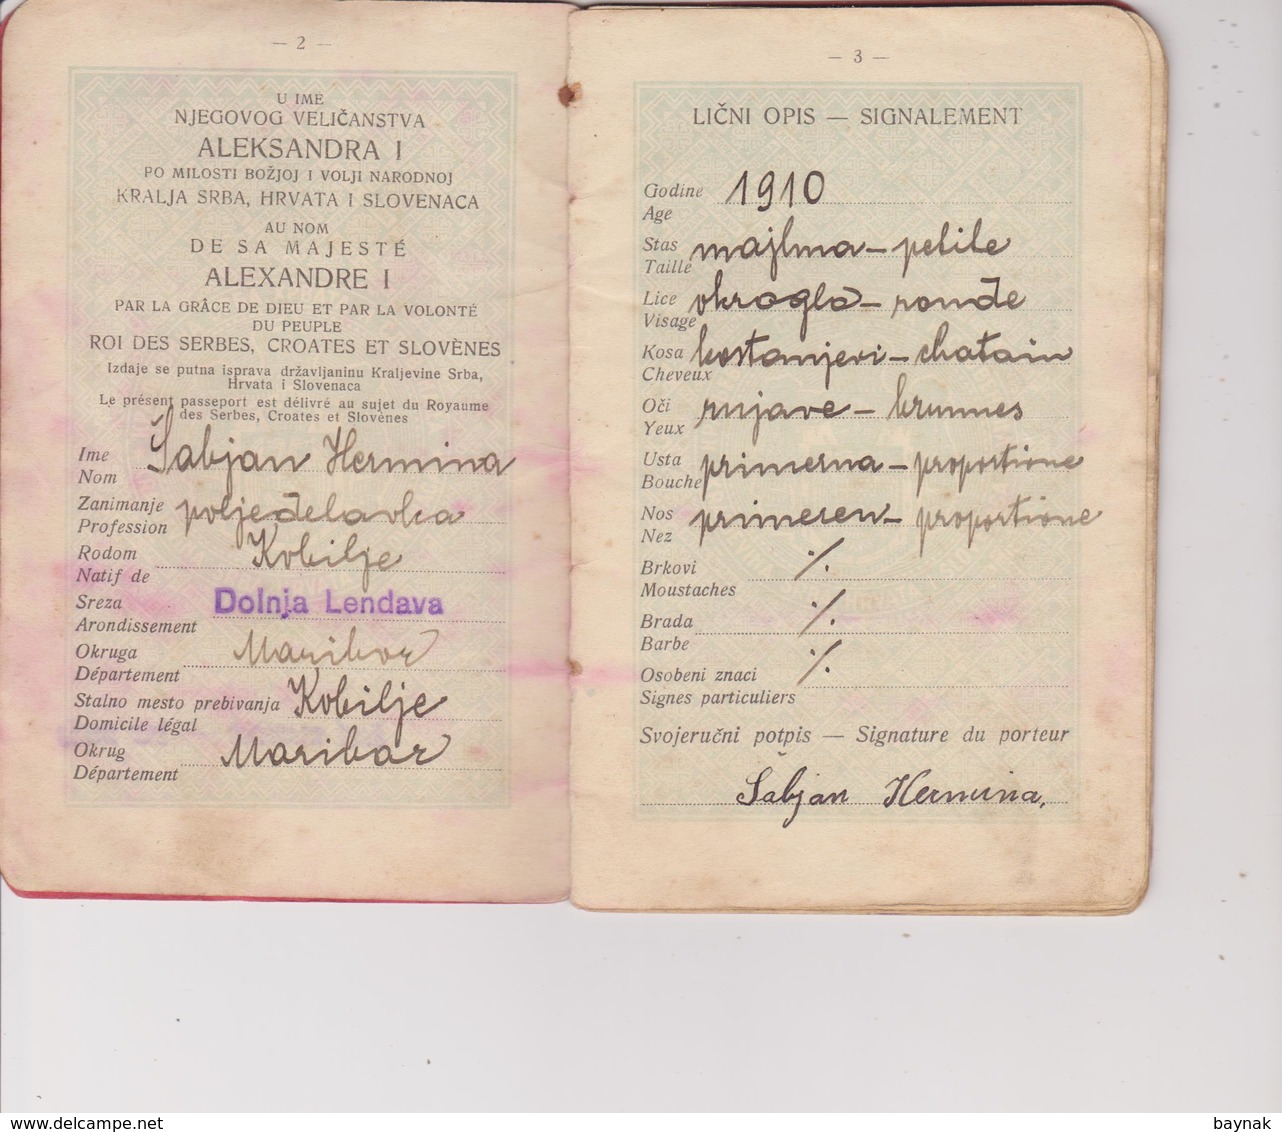 — 2 —
U IME
NJEGOVOG VELIČANSTVA
ALEKSANDRA I
PO MILOSTI BOŽJOJ I VOLJI NARODNOJ
KRALJA SRBA, HRVATA I SLOVENACA
AU NOM
DE SA MAJESTÉ
ALEXANDRE I
PAR LA GRÂCE DE DIEU ET PAR LA VOLONTÉ
DU PEUPLE
ROI DES SERBES, CROATES ET SLOVÈNES
Izdaje se putna isprava državljaninu Kraljevine Srba,
Hrvata i Slovenaca
Le présent passeport est délivré au sujet du Royaume
des Serbes, Croates et Slovènes
Ime Šabjan Hermina
Nom
Zanimanje poljedelavka
Profession
Rodom Kobilje
Natif de
Sreza Dolnja Lendava
Arondissement
Okruga Maribor
Département
Stalno mesto prebivanja Kobilje
Domicile légal
Okrug Maribor
Département
— 3 —
LIČNI OPIS — SIGNALEMENT
Godine 1910
Age
Stas majhna - petite
Taille
Lice okroglo - ronde
Visage
Kosa kostanjevi - chatain
Cheveux
Oči rujave - brunnes
Yeux
Usta primerna - proportione
Bouche
Nos primeren - proportione
Nez
Brkovi ·/.
Moustaches
Brada ·/.
Barbe
Osobeni znaci ·/.
Signes particuliers
Svojeručni potpis — Signature du porteur
Šabjan Hermina,
baynak